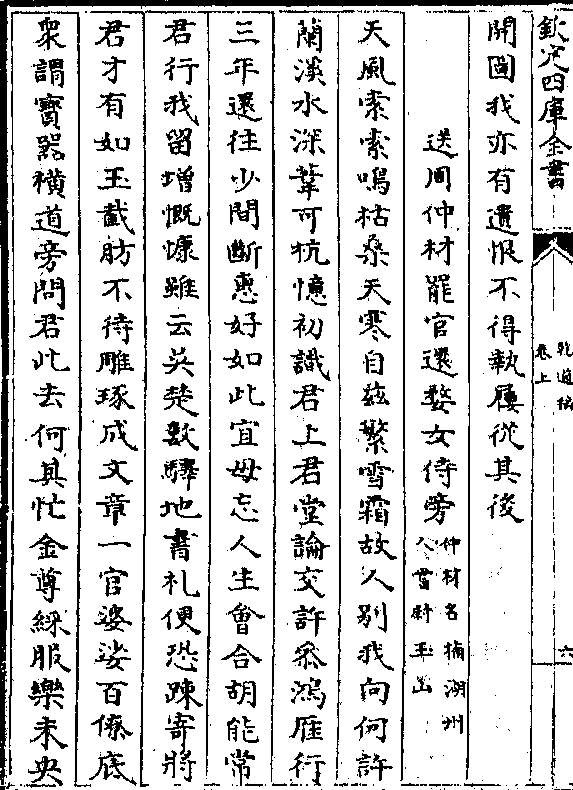 欽定四庫全書
乾道稿
卷上
六
開圖我亦有遺恨不得執屨從其後
送周仲材罷官還婺女侍旁
仲材名楠湖州
人嘗尉玉山
天風索索鳴枯桑天寒自茲繁雪霜故人別我向何許
蘭溪水深葦可杭憶初識君上君堂論交許忝鴻雁行
三年還往少間斷惠好如此宜毋忘人生會合胡能常
君行我留增慨慷雖云吳楚數驛地書札便恐踈寄將
君才有如玉截肪不待雕琢成文章一官婆娑百僚底
衆謂寶器橫道旁問君此去何其忙金尊綵服樂未央